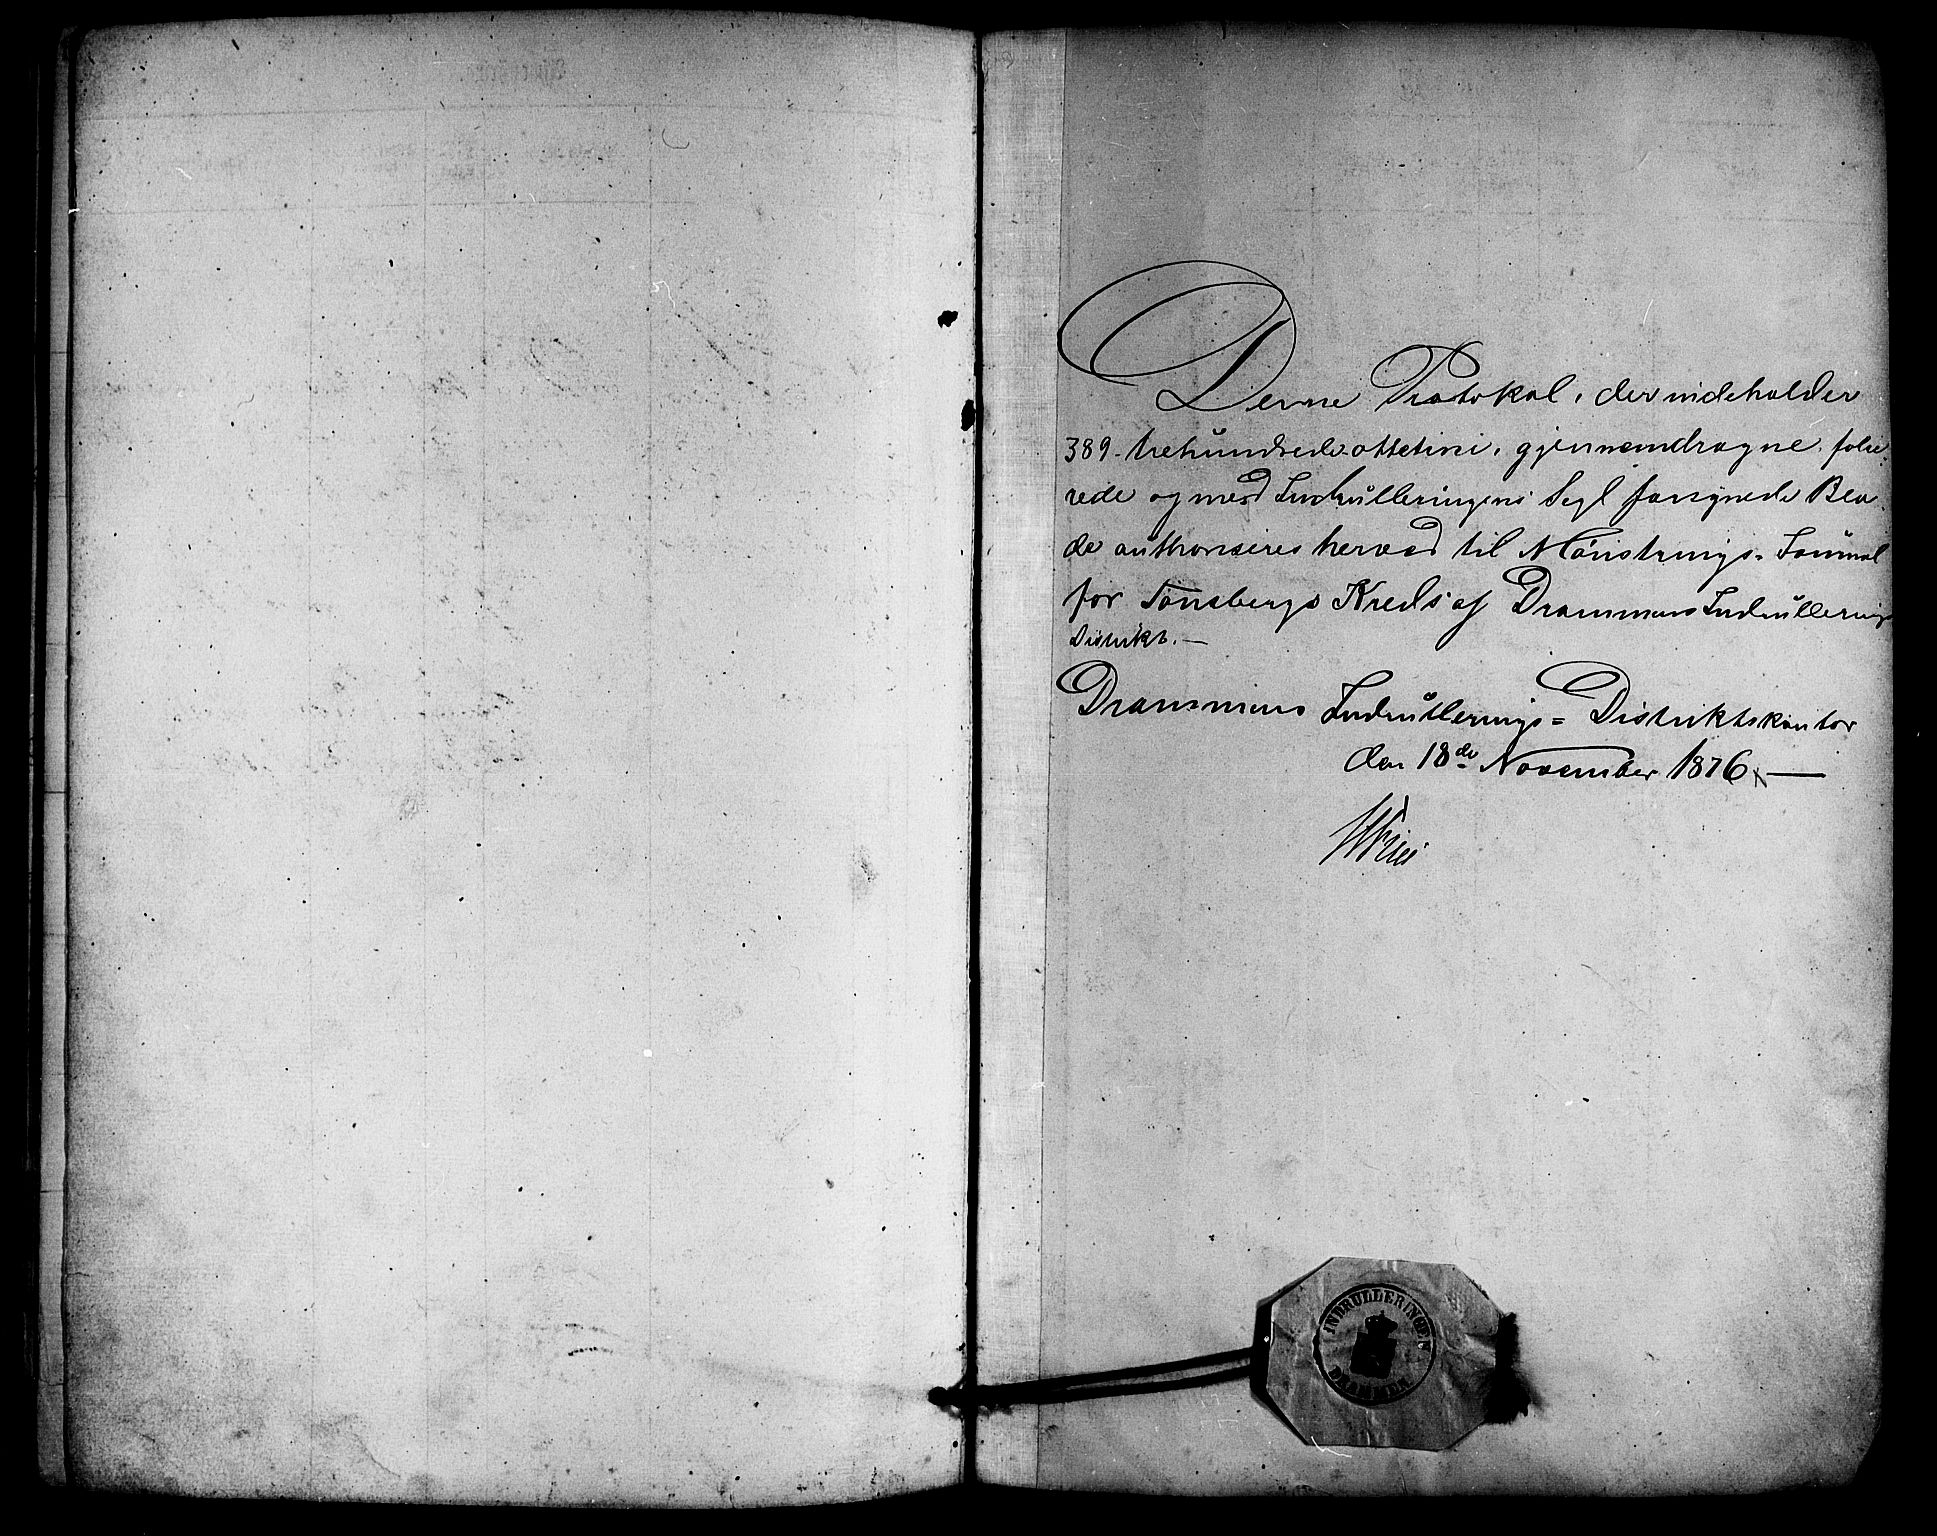 Denne Protokol, der indeholder
389 - trehundrede ottetini, gjennemdragne, folie,
rede og med Indrulleringens Segl forsynede Bla,
de authoriseres herved til Mønstrings=Journal
for Tønsbergs Kreds af Drammens Indrullerings
Distrikt. —
Drammens Indrullerings=Distriktskontor
den 18de November 1876. —
INDRULLERINGEN
DRAMMEN